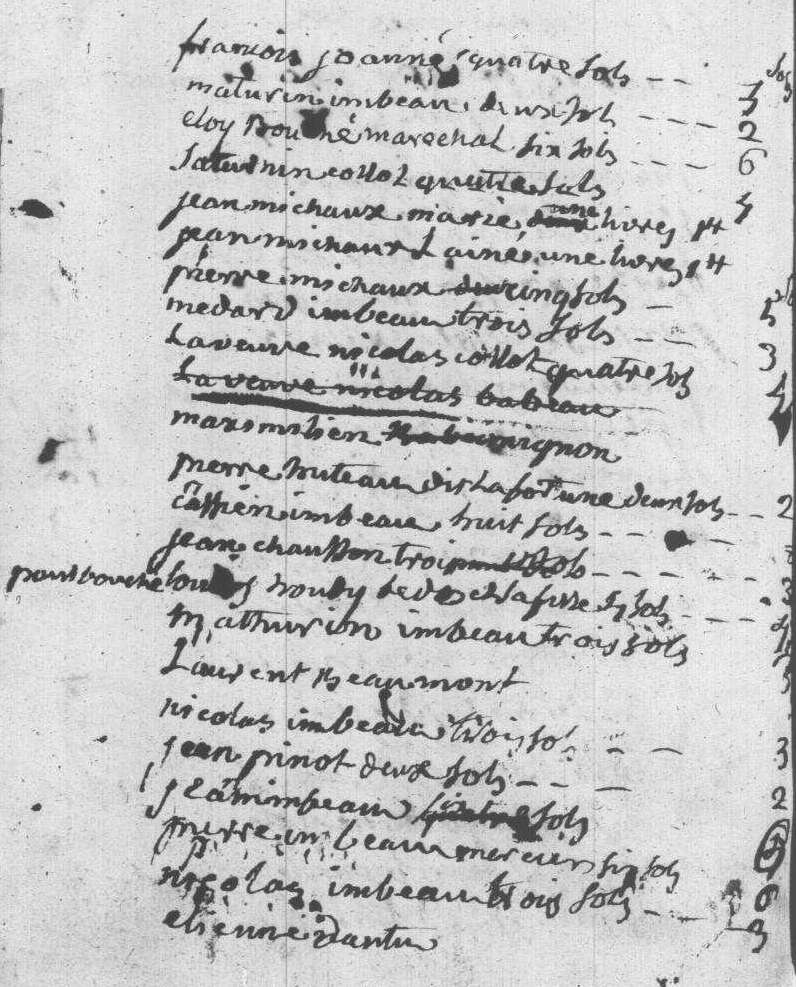 francois joanné quatre sols -- sols
maturin imbeau deux sols ---- 2
eloy Bouché marechal six sols ---- 6
saturnin collot quatre sols 4
jean michaux marié une livres 1 tt
jean michaux Lainé une livres 1 tt
pierre michaux cinq sols - 5
medard imbeau trois sols -- 3
La veuve nicolas collot quatre sols 4
La veuve nicolas babeau
maximilien mignon
pierre huteau dit la fortune deux sols -- 2
cassien imbeau huit sols --
jean chausson trois sols ----- 3
pour bouché louis et la fille 4 sols --- 4
Mathurin imbeau trois sols 3
Laurent Beaumont
nicolas imbeau trois sols -- 3
jean pinot deux sols --- 2
jean imbeau sols
pierre imbeau mercier six sols 6
nicolas imbeau trois sols -- 3
etienne dantu